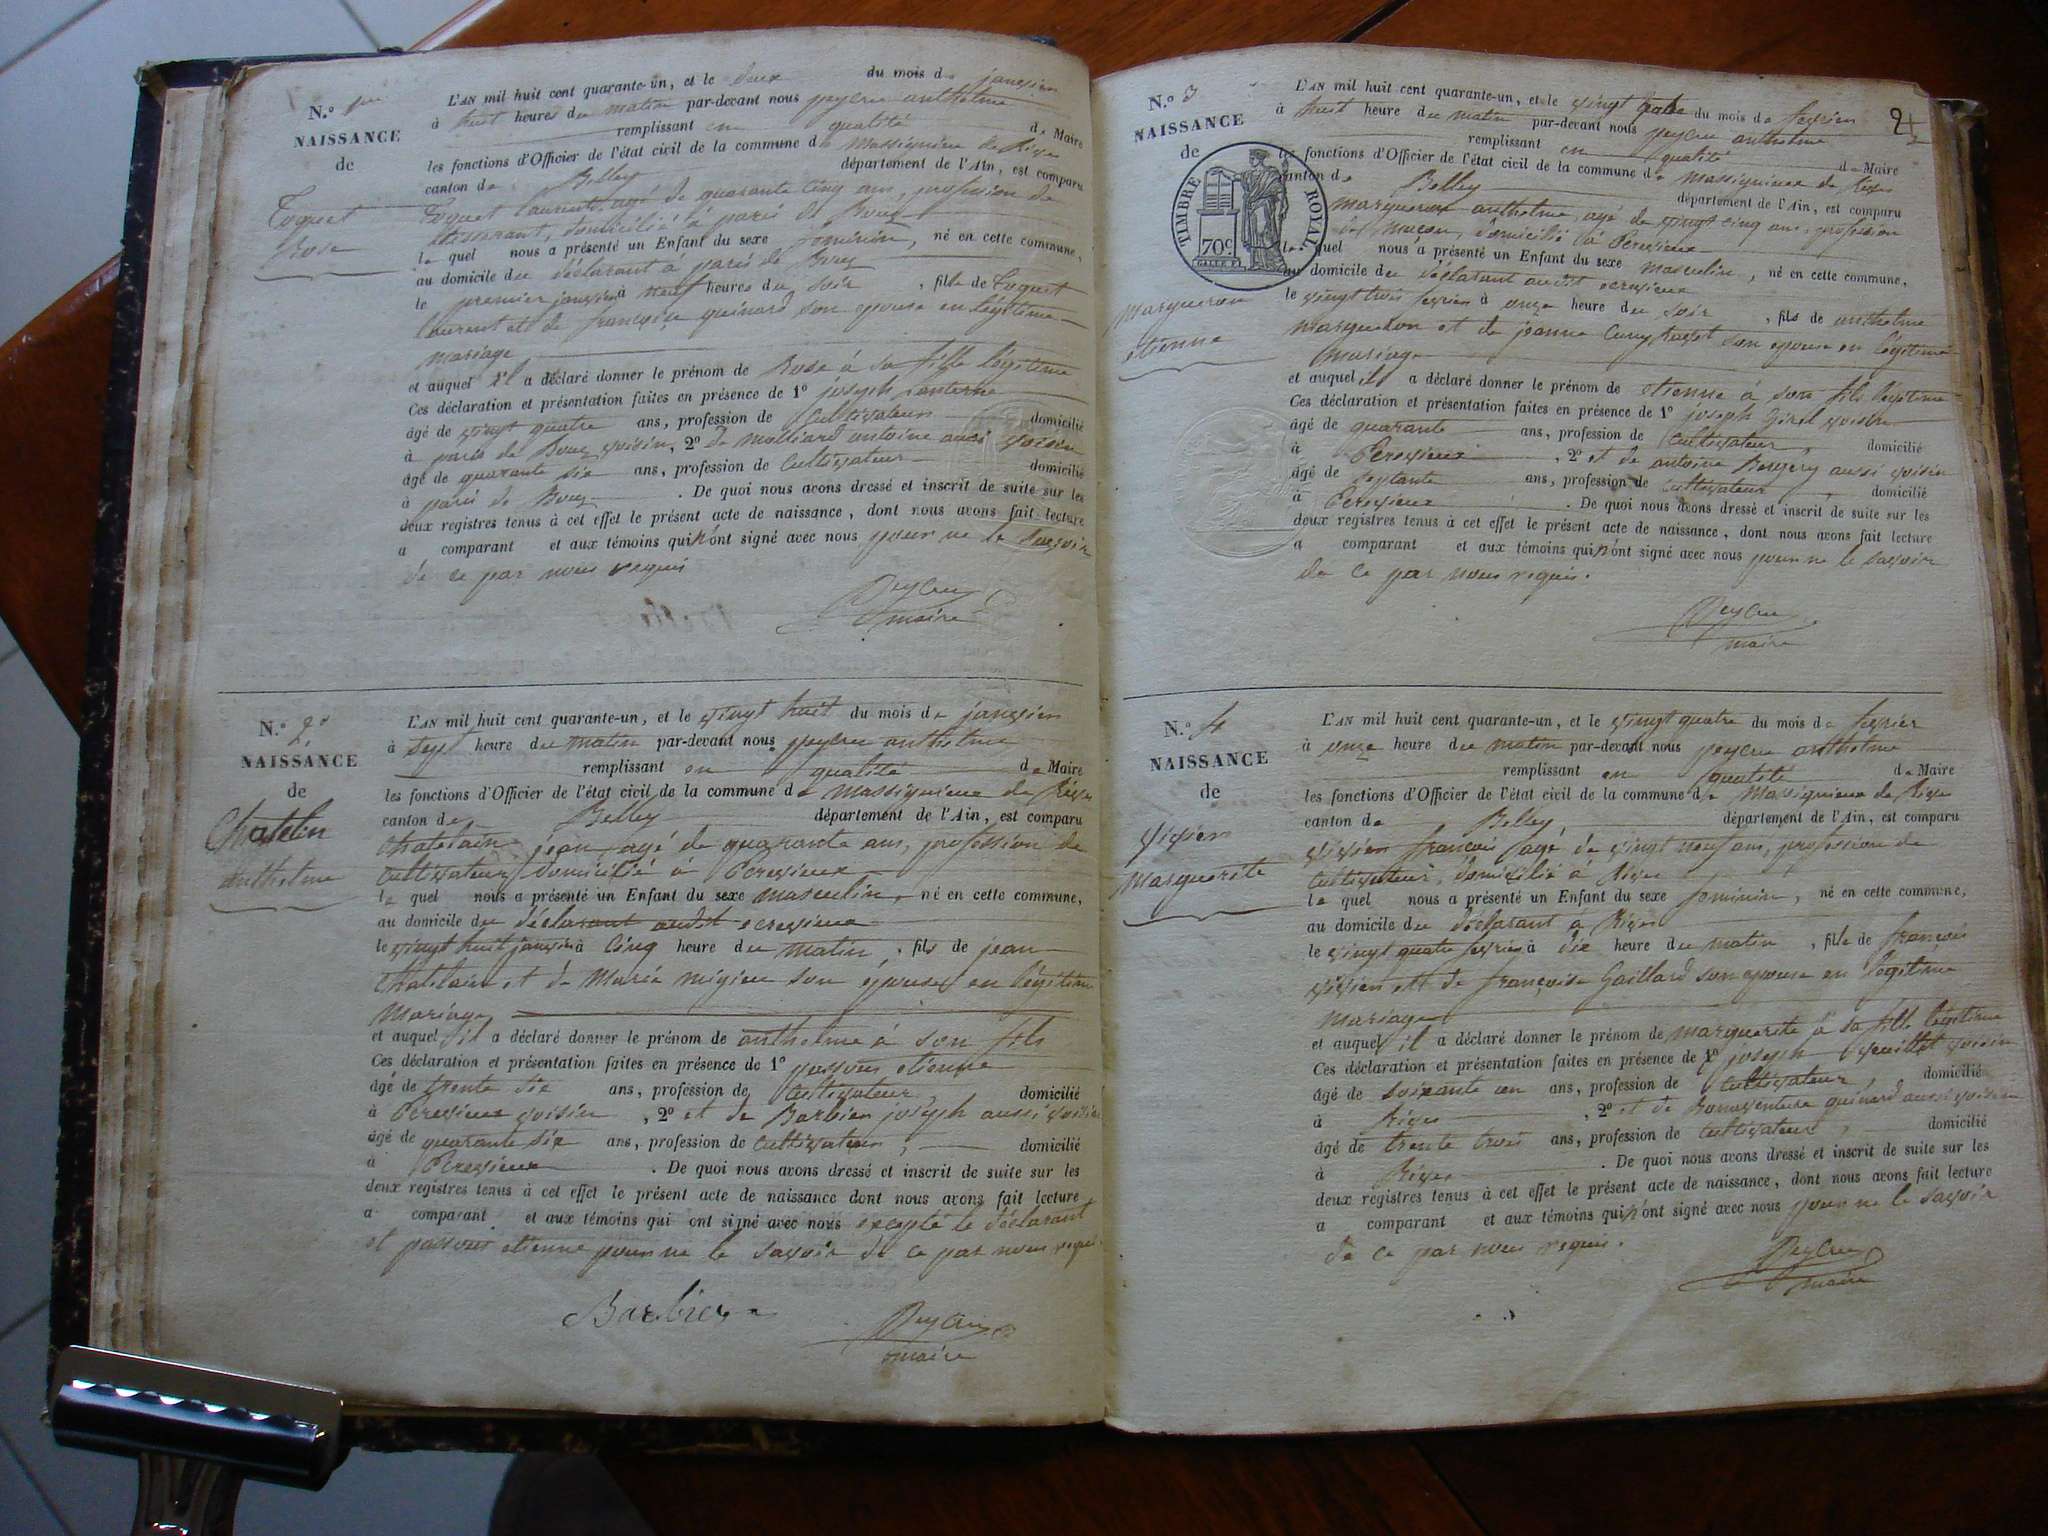 N.o 1er
NAISSANCE
de
Toquet
Rose
L'AN mil huit cent quarante-un, et le deux du mois de janvier
à huit heures du matin par-devant nous peycru anthelme
remplissant en qualité de Maire
les fonctions d'Officier de l'état civil de la commune de Massignieu de Rives
canton de Belley département de l'Ain, est comparu
Toquet laurent, agé de quarante cinq ans, profession de
tisserant, domicilié à paris de Bouz
le quel nous a présenté un Enfant du sexe féminin, né en cette commune,
au domicile du déclarant à paris de Bouz
le premier janvier à neuf heures du soir, fille de Toquet
laurent et de françoise guinard son epouse en légitime
mariage
et auquel il a déclaré donner le prénom de Rose à sa fille légitime
Ces déclaration et présentation faites en présence de 1o joseph Lanterne
âgé de vingt quatre ans, profession de Cultivateur domicilié
à paris de Bouz voisin, 2o de molliard antoine aussi voisin
âgé de quarante six ans, profession de Cultivateur domicilié
à paris de Bouz. De quoi nous avons dressé et inscrit de suite sur les
deux registres tenus à cet effet le présent acte de naissance, dont nous avons fait lecture
a comparant et aux témoins qui n'ont signé avec nous pour ne le savoir
de ce par nous requis
Peycru
maire
N.o 2e
NAISSANCE
de
Chatelin
anthelme
L'AN mil huit cent quarante-un, et le vingt huit du mois de janvier
à sept heure du matin par-devant nous peycru anthelme
remplissant en qualité de Maire
les fonctions d'Officier de l'état civil de la commune de Massignieu de Rives
canton de Belley département de l'Ain, est comparu
Chatelain jean, agé de quarante ans, profession de
Cultivateur, domicilié à Ecrevieux
le quel nous a présenté un Enfant du sexe masculin, né en cette commune,
au domicile du déclarant audit ecrevieux
le vingt huit janvier à cinq heure du matin, fils de jean
Chatelain et de Marie migieu son épouse en légitime
Mariage
et auquel il a déclaré donner le prénom de anthelme à son fils
Ces déclaration et présentation faites en présence de 1o etienne
âgé de trente six ans, profession de Cultivateur, domicilié
à Ecrevieux voisin, 2o et de Barbier joseph aussi voisin
âgé de quarante six ans, profession de Cultivateur, domicilié
à Ecrevieux. De quoi nous avons dressé et inscrit de suite sur les
deux registres tenus à cet effet le présent acte de naissance dont nous avons fait lecture
a comparant et aux témoins qui ont signé avec nous excepté le déclarant
et etienne pour ne le savoir de ce par nous requis
Barbier
Peycru
maire
2
N.o 3
NAISSANCE
de
TIMBRE ROYAL
70c
Margueron
etienne
L'AN mil huit cent quarante-un, et le vingt quatre du mois de fevrier
à huit heure du matin par-devant nous peycru anthelme
remplissant en qualité de Maire
les fonctions d'Officier de l'état civil de la commune de Massignieu de Rives
canton de Belley département de l'Ain, est comparu
margueron anthelme, agé de vingt cinq ans, profession
de maçon, domicilié à Ecrevieux
le quel nous a présenté un Enfant du sexe masculin, né en cette commune,
au domicile du déclarant audit ecrevieux
le vingt trois fevrier à onze heure du soir, fils de anthelme
margueron et de jeanne son epouse en légitime
mariage
et auquel il a déclaré donner le prénom de etienne à son fils légitime
Ces déclaration et présentation faites en présence de 1o joseph Girel voisin
âgé de quarante ans, profession de Cultivateur, domicilié
à Ecrevieux, 2o et de antoine Bergery aussi voisin
âgé de septante ans, profession de Cultivateur, domicilié
à Ecrevieux. De quoi nous avons dressé et inscrit de suite sur les
deux registres tenus à cet effet le présent acte de naissance, dont nous avons fait lecture
a comparant et aux témoins qui n'ont signé avec nous pour ne le savoir
de ce par nous requis.
Peycru
maire
N.o 4
NAISSANCE
de
Vivien
Marguerite
L'AN mil huit cent quarante-un, et le vingt quatre du mois de fevrier
à onze heure du matin par-devant nous peycru anthelme
remplissant en qualité de Maire
les fonctions d'Officier de l'état civil de la commune de Massignieu de Rives
canton de Belley département de l'Ain, est comparu
Vivien françois, agé de vingt neuf ans, profession de
Cultivateur, domicilié à Rives
le quel nous a présenté un Enfant du sexe féminin, né en cette commune,
au domicile du déclarant à Rives
le vingt quatre fevrier à dix heure du matin, fille de françois
vivien et de françoise Gaillard son epouse en légitime
mariage
et auquel il a déclaré donner le prénom de marguerite à sa fille légitime
Ces déclaration et présentation faites en présence de 1o joseph voisin
âgé de soixante un ans, profession de Cultivateur, domicilié
à Rives, 2o et de Bonaventure guinard aussi voisin
âgé de trente trois ans, profession de Cultivateur, domicilié
à Rives. De quoi nous avons dressé et inscrit de suite sur les
deux registres tenus à cet effet le présent acte de naissance, dont nous avons fait lecture
a comparant et aux témoins qui n'ont signé avec nous pour ne le savoir
de ce par nous requis.
Peycru
maire